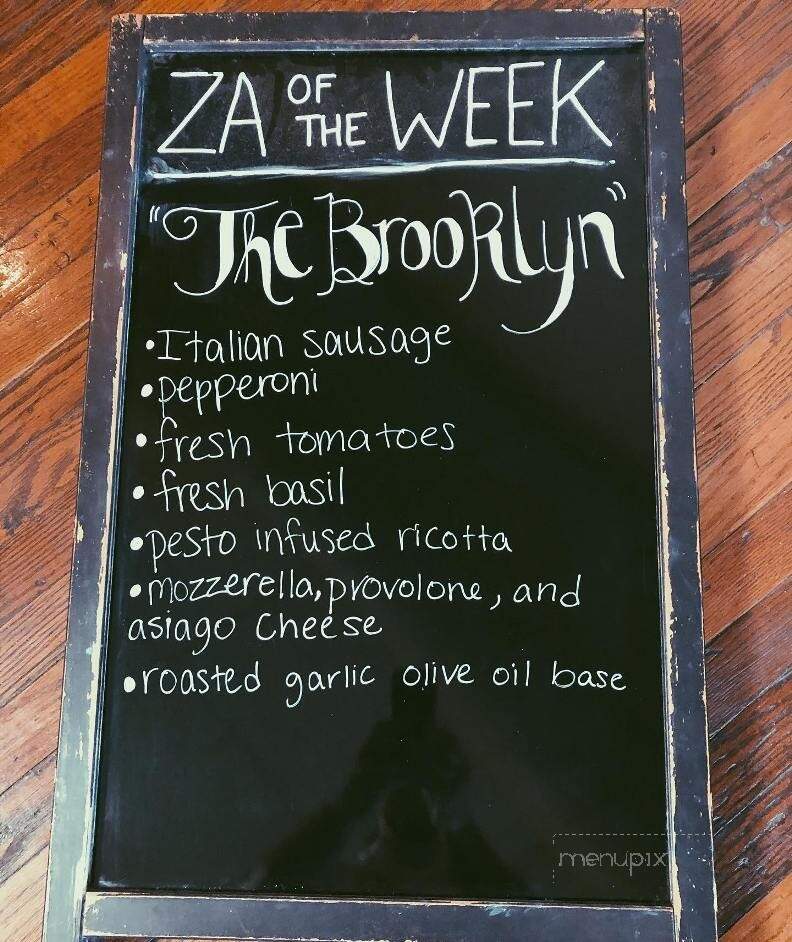 ZA OF THE WEEK
"The Brooklyn"
•Italian sausage
•pepperoni
•fresh tomatoes
•fresh basil
•pesto infused ricotta
•mozzerella, provolone, and
asiago cheese
•roasted garlic olive oil base
menupix